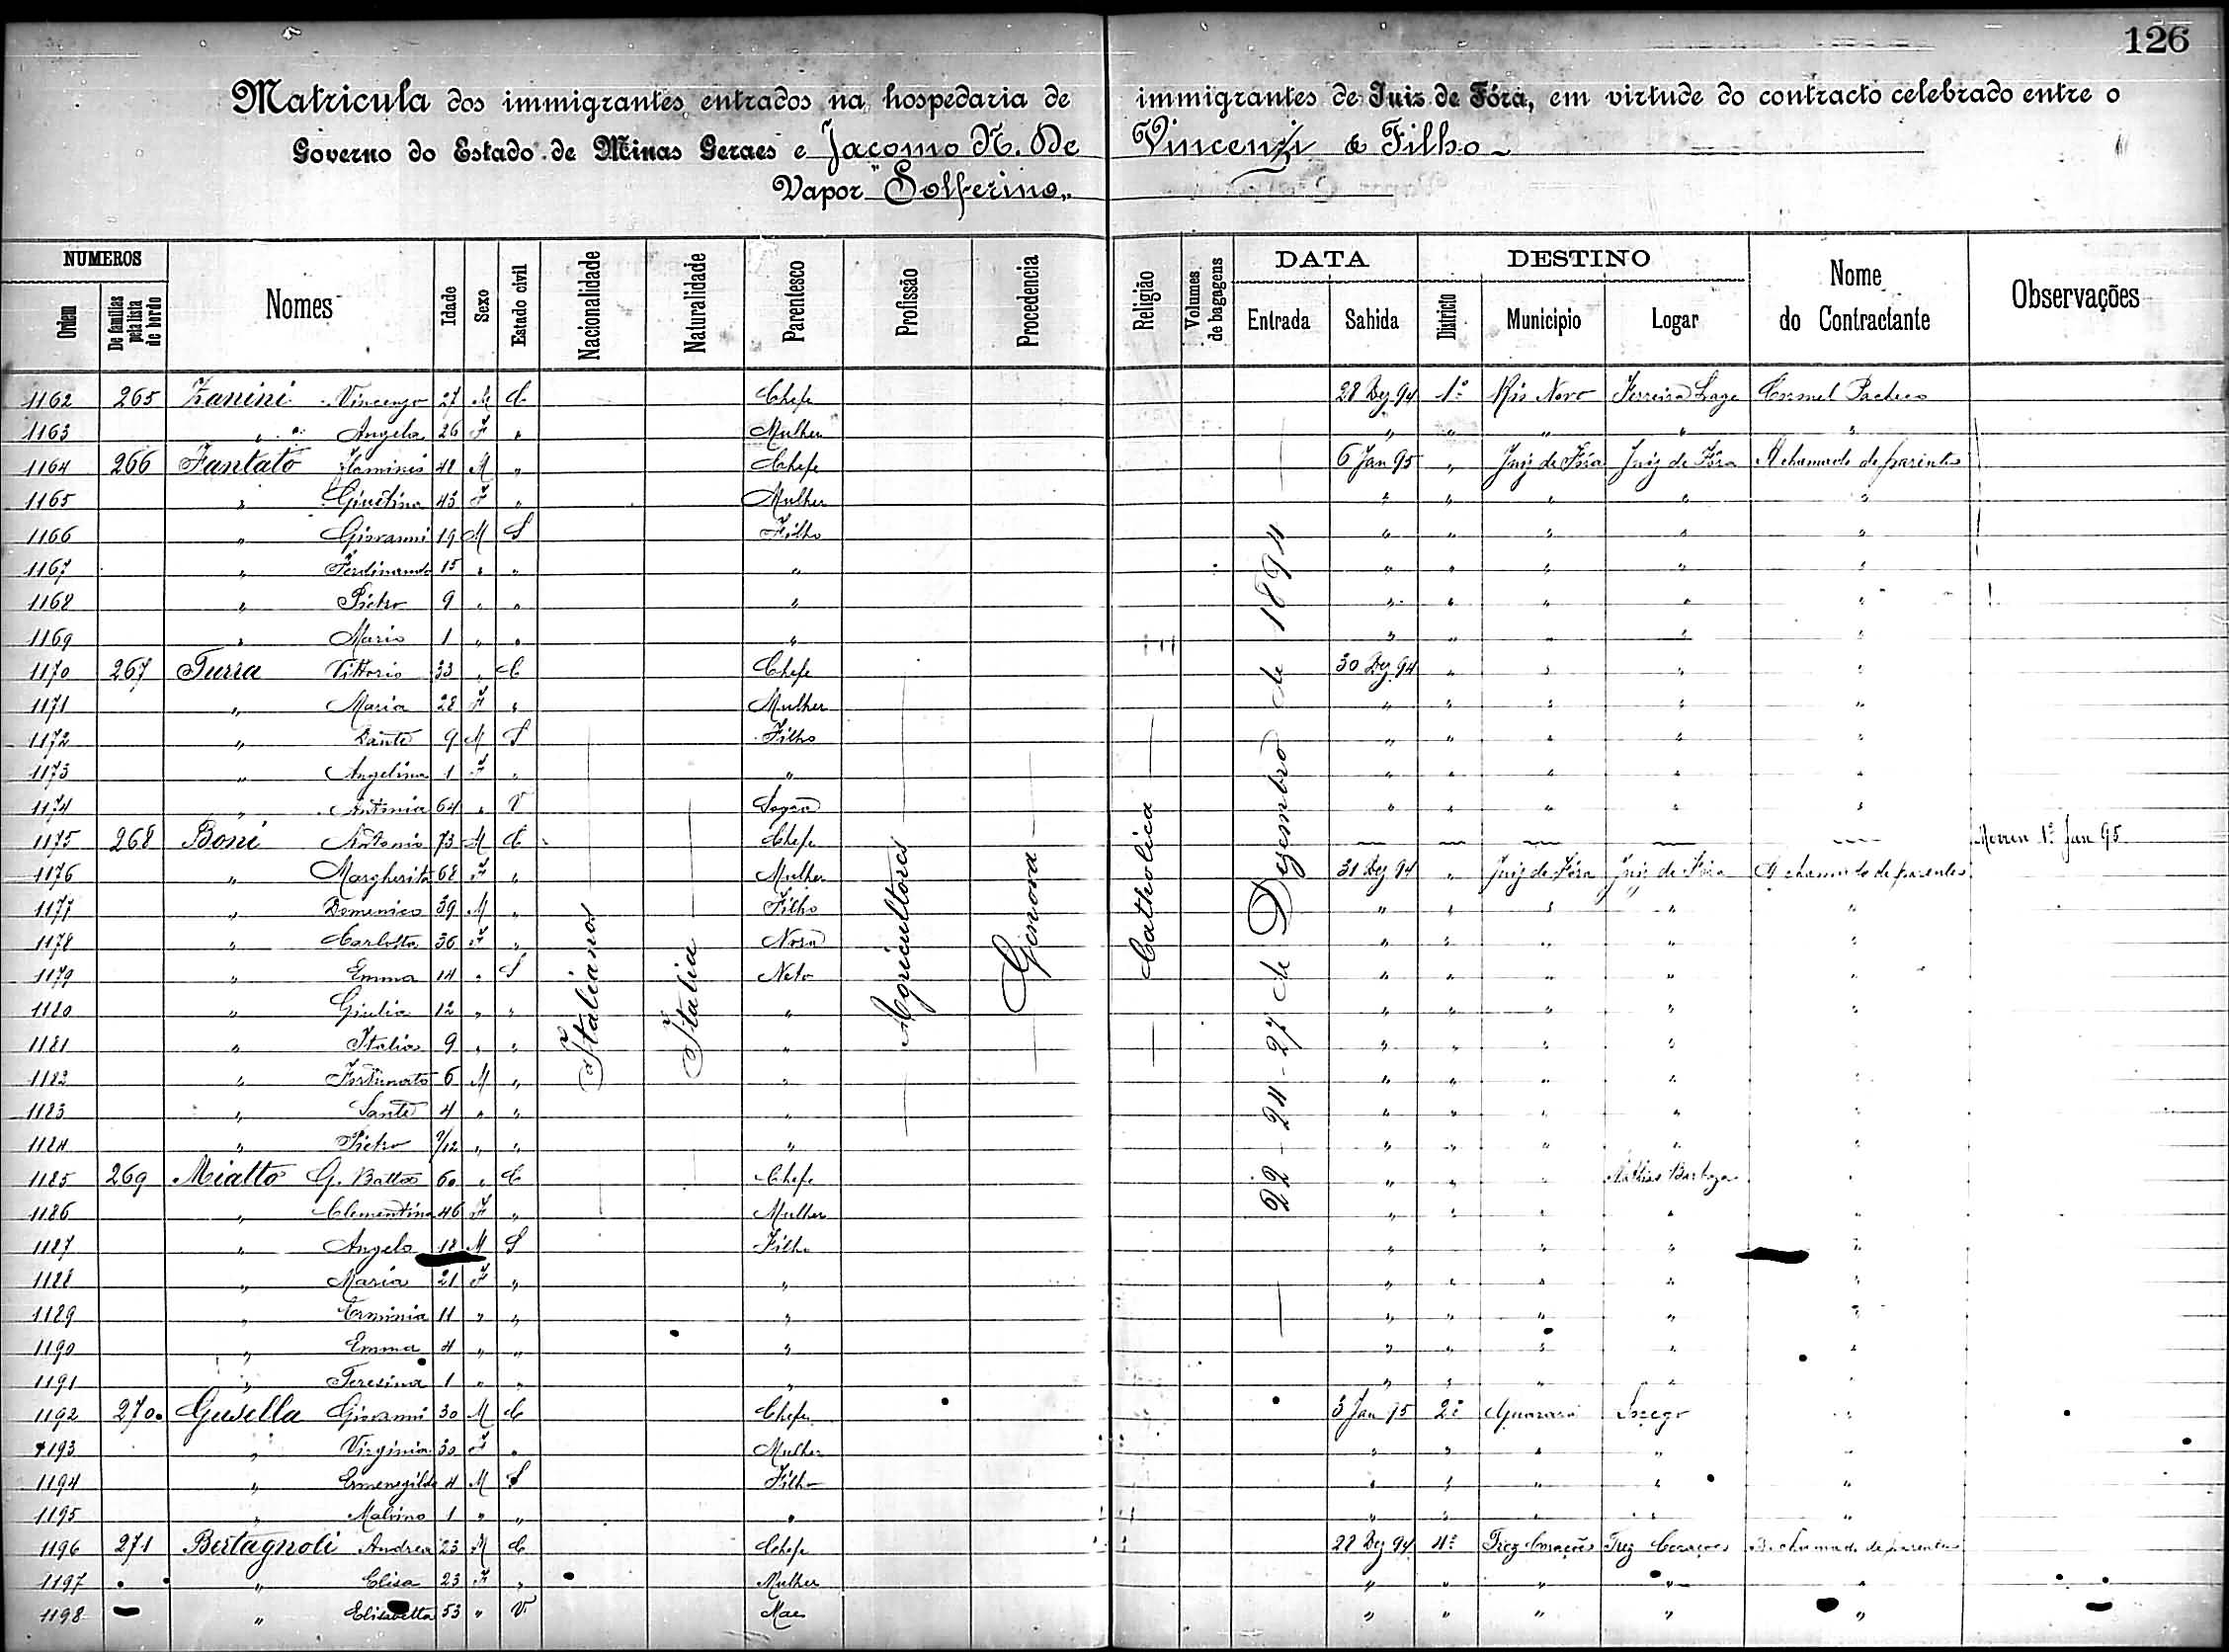 126
Matricula dos immigrantes entrados na hospedaria de immigrantes de Juiz de Fóra, em virtude do contracto celebrado entre o
Governo do Estado de Minas Geraes e Jacomo N. De Vincenzi & Filho
Vapor "Solferino"
NUMEROS DATA DESTINO
Ordem De familias pela lista de bordo Nomes Idade Sexo Estado civil Nacionalidade Naturalidade Parentesco Profissão Procedencia Religião Volumes de bagagens Entrada Sahida Districto Municipio Logar Nome do Contractante Observações
Italianos Italia Agricultores Genova Catholica 22 - 24 - 27 de Dezembro de 1894
1162 265 Zanini Vincenzo 27 M C Chefe 28 Dez 94 1º Rio Novo Ferreira Lage Coronel Pacheco
1163 " Angela 26 F " Mulher " " " " "
1164 266 Fantato 48 M " Chefe 6 Jan 95 " Juiz de Fóra Juiz de Fóra A chamado de parentes
1165 " Giustina 43 F " Mulher " " " " "
1166 " Giovanni 19 M S Filho " " " " "
1167 " Ferdinando 15 " " " " " " " "
1168 " Pietro 9 " " " " " " " "
1169 " Mario 1 " " " " " " " "
1170 267 Turra Vittorio 33 " C Chefe 30 Dez 94 " " " "
1171 " Maria 28 F " Mulher " " " " "
1172 " Dante 9 M S Filho " " " " "
1173 " Angelina 1 F " " " " " " "
1174 " Antonia 64 " V Sogra " " " " "
1175 268 Boni Antonio 73 M C Chefe Morreu 1º Jan 95
1176 " Margherita 68 F " Mulher 31 Dez 94 " Juiz de Fóra Juiz de Fóra A chamado de parentes
1177 " Domenico 39 M " Filho " " " " "
1178 " Carlotta 36 F " Nora " " " " "
1179 " Emma 14 " S Neto " " " " "
1180 " Giulia 12 " " " " " " " "
1181 " Italia 9 " " " " " " " "
1182 " Fortunato 6 M " " " " " " "
1183 " Sante 4 " " " " " " " "
1184 " Pietro " " " " " " " "
1185 269 Mialto G. Batta 60 " C Chefe " " " Mathias Barboza "
1186 " Clementina 46 F " Mulher " " " " "
1187 " Angelo 18 M S Filho " " " "
1188 " Maria 21 F " " " " " " "
1189 " Erminia 11 " " " " " " " "
1190 " Emma 4 " " " " " " " "
1191 " Teresina 1 " " " " " " " "
1192 270 Gusella Giovanni 30 M C Chefe 3 Jan 95 2º Guarará "
1193 " Virginia 30 F " Mulher " " " " "
1194 " Ermenegildo 4 M S Filho " " " " "
1195 " Malvino 1 " " " " " " " "
1196 271 Bertagnoli Andrea 23 M C Chefe 28 Dez 94 4º Trez Corações Trez Corações A chamado de parentes
1197 " Elisa 23 F " Mulher " " " " "
1198 " Elisabetta 53 " V Mae " " " " "